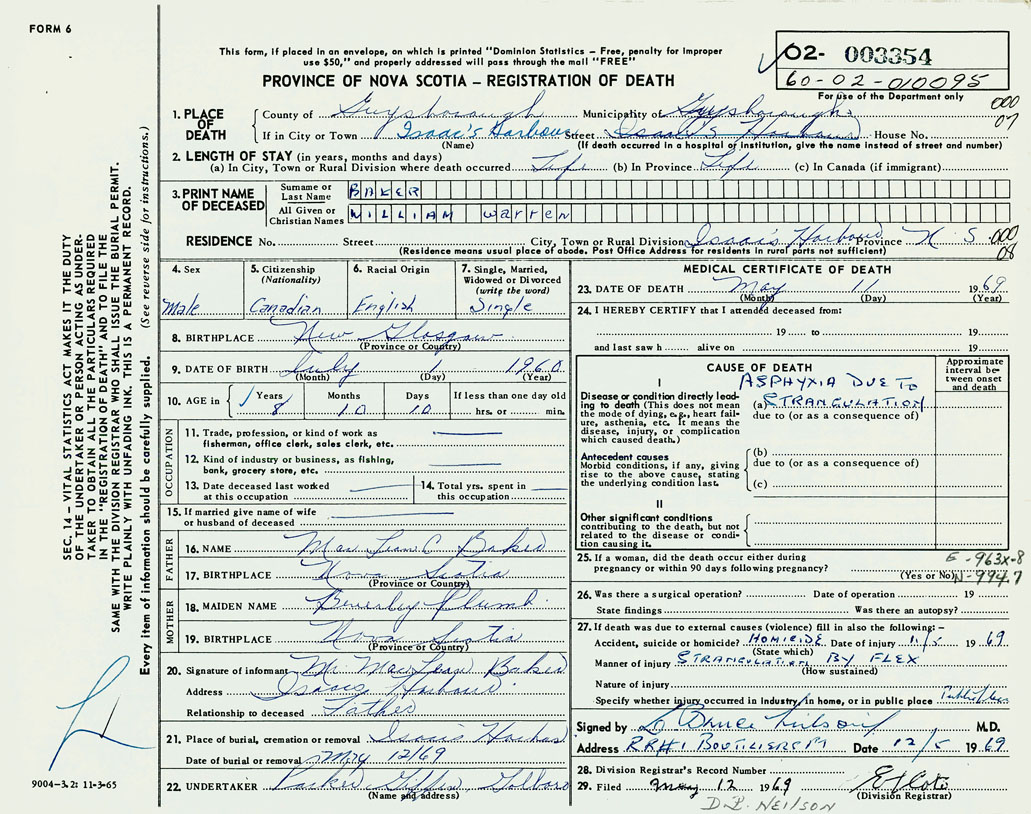 FORM 6
This form, if placed in an envelope, on which is printed "Dominion Statistics – Free, penalty for improper
use $50," and properly addressed will pass through the mail "FREE"
PROVINCE OF NOVA SCOTIA – REGISTRATION OF DEATH
02- 003354
60-02-010095
For use of the Department only
000
07
1. PLACE OF DEATH
County of Guysborough Municipality of Guysborough
If in City or Town Isaac's Harbour Street Isaac's Harbour House No.
(Name) (If death occurred in a hospital or institution, give the name instead of street and number)
2. LENGTH OF STAY (in years, months and days)
(a) In City, Town or Rural Division where death occurred Life (b) In Province Life (c) In Canada (if immigrant)
3. PRINT NAME OF DECEASED
Surname or Last Name BAKER
All Given or Christian Names WILLIAM Warren
RESIDENCE No. Street City, Town or Rural Division Isaac's Harbour Province N.S.
000
08
(Residence means usual place of abode. Post Office Address for residents in rural parts not sufficient)
4. Sex
Male
5. Citizenship
(Nationality)
Canadian
6. Racial Origin
English
7. Single, Married,
Widowed or Divorced
(write the word)
Single
8. BIRTHPLACE New Glasgow
(Province or Country)
9. DATE OF BIRTH July 1 1960
(Month) (Day) (Year)
10. AGE in
Years Months Days If less than one day old
8 10 10 hrs. or min.
OCCUPATION
11. Trade, profession, or kind of work as
fisherman, office clerk, sales clerk, etc.
12. Kind of industry or business, as fishing,
bank, grocery store, etc.
13. Date deceased last worked
at this occupation
14. Total yrs. spent in
this occupation
15. If married give name of wife
or husband of deceased
FATHER
16. NAME MacLean C Baker
17. BIRTHPLACE Nova Scotia
(Province or Country)
MOTHER
18. MAIDEN NAME Beverley Plumb
19. BIRTHPLACE Nova Scotia
(Province or Country)
20. Signature of informant M. MacLean Baker
Address Isaacs Harbour
Relationship to deceased Father
21. Place of burial, cremation or removal Isaac's Harbor
Date of burial or removal May 12/69
22. UNDERTAKER Giffin Goldboro
(Name and address)
MEDICAL CERTIFICATE OF DEATH
23. DATE OF DEATH May 11 1969
(Month) (Day) (Year)
24. I HEREBY CERTIFY that I attended deceased from:
19 to 19
and last saw h alive on 19
CAUSE OF DEATH
Approximate
interval be-
tween onset
and death
I
Disease or condition directly lead-
ing to death (This does not mean
the mode of dying, e.g., heart fail-
ure, asthenia, etc. It means the
disease, injury, or complication
which caused death.)
ASPHYXIA DUE TO
(a) STRANGULATION
due to (or as a consequence of)
Antecedent causes
Morbid conditions, if any, giving
rise to the above cause, stating
the underlying condition last.
(b)
due to (or as a consequence of)
(c)
II
Other significant conditions
contributing to the death, but not
related to the disease or condi-
tion causing it.
25. If a woman, did the death occur either during
pregnancy or within 90 days following pregnancy?
(Yes or No)
E-963X-8
N-994.7
26. Was there a surgical operation? Date of operation 19
State findings Was there an autopsy?
27. If death was due to external causes (violence) fill in also the following: –
Accident, suicide or homicide? HOMICIDE Date of injury 11/5 1969
(State which)
Manner of injury STRANGULATION BY FLEX
(How sustained)
Nature of injury
Specify whether injury occurred in industry, in home, or in public place Public Place
Signed by M.D.
Address RR#1 Date 12/5 1969
28. Division Registrar's Record Number
29. Filed May 12 1969
(Division Registrar)
D.B. NEILSON
SEC. 14 – VITAL STATISTICS ACT MAKES IT THE DUTY
OF THE UNDERTAKER OR PERSON ACTING AS UNDER-
TAKER TO OBTAIN ALL THE PARTICULARS REQUIRED
IN THE "REGISTRATION OF DEATH" AND TO FILE THE
SAME WITH THE DIVISION REGISTRAR WHO SHALL ISSUE THE BURIAL PERMIT.
WRITE PLAINLY WITH UNFADING INK. THIS IS A PERMANENT RECORD.
Every item of information should be carefully supplied. (See reverse side for instructions.)
9004-3.2: 11-3-65